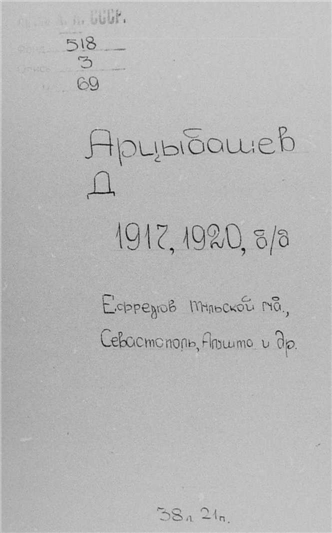 СССР.
518
3
69
Арцыбашев
Д
1917, 1920, б/д
Ефремов Тульской губ.,
Севастополь, Алушта и др.
38л 21п.